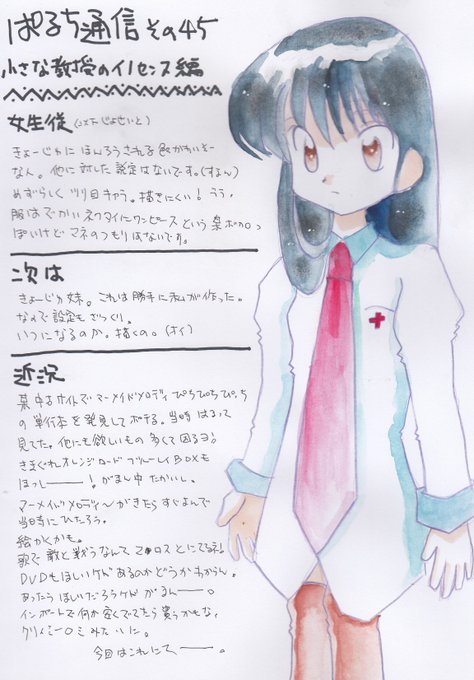 ぱるち通信 その45
小さな教授のイノセンス編
女生徒(コメ下じょせいと)
きょーじゅに ほんろうされる 色がわいそー
なん。他に対した設定はないです。(すまん)
めずらしく ツリ目キャラ。描きにくい! うう、
服はでかいネクタイにワンピース という 某ボカロっ
ぽいけど マネのつもりはないです。
次は
きょーじゅ妹。これは勝手に私が作った。
なので設定もざっくり。
いつになるのか。描くの。(オイ)
近況
某中古サイトで マーメイドメロディぴちぴちぴっち
の単行本を発見してポチる。当時はまって
見てた。他にも欲しいもの 多くて困るヨ。
きまぐれオレンジロード ブルーレイBOXも
ほっしーー!がまん中 たかいし。
マーメイドメロディ〜がきたら すぐよんで
当時にひたろう。
絵かくかも。
歌で 敵と戦うなんて マ●ロス とにてるネ!
DVDもほしいけど あるのかどうかわからん。
あったら ほしいだろうけど がまんーー。
インポートで何か安くでてたら 買うかもな、
クリィミーマミ みたいに。
今回はこれにてーー。